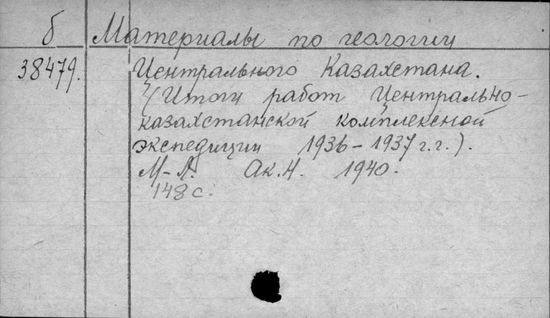 б Материалы по геологии
38479. Центрального Казахстана.
(Итоги работ Центрально-
казахстанской комплексной
экспедиции 1936-1937 г.г.).
М-Л. Ак.Н. 1940.
148 с.